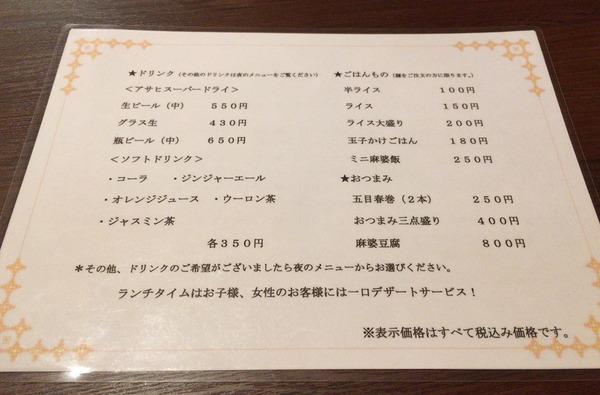 ★ドリンク（その他のドリンクは夜のメニューをご覧ください）
＜アサヒスーパードライ＞
生ビール（中） ５５０円
グラス生 ４３０円
瓶ビール（中） ６５０円
＜ソフトドリンク＞
・コーラ ・ジンジャーエール
・オレンジジュース ・ウーロン茶
・ジャスミン茶
各３５０円
★ごはんもの（麺をご注文の方に限ります。）
半ライス １００円
ライス １５０円
ライス大盛り ２００円
玉子かけごはん １８０円
ミニ麻婆飯 ２５０円
★おつまみ
五目春巻（２本） ２５０円
おつまみ三点盛り ４００円
麻婆豆腐 ８００円
＊その他、ドリンクのご希望がございましたら夜のメニューからお選びください。
ランチタイムはお子様、女性のお客様には一口デザートサービス！
※表示価格はすべて税込み価格です。